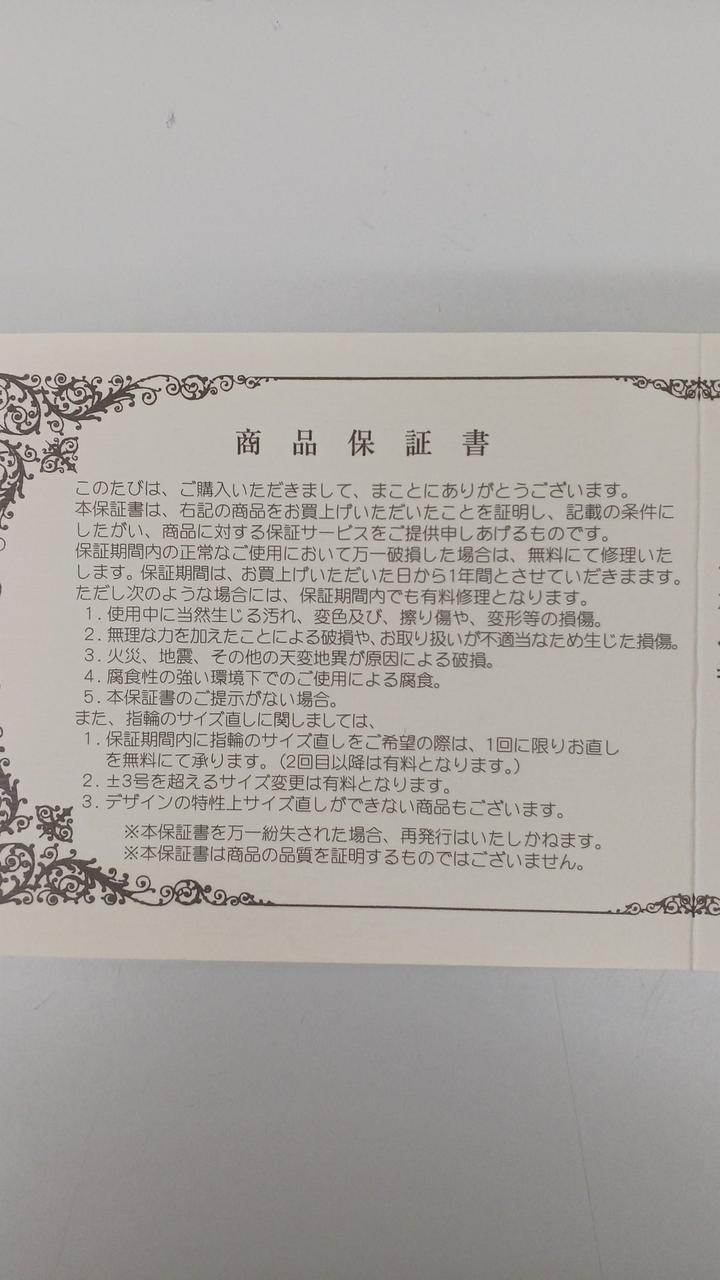 商品保証書
このたびは、ご購入いただきまして、まことにありがとうございます。
本保証書は、右記の商品をお買上げいただいたことを証明し、記載の条件に
したがい、商品に対する保証サービスをご提供申しあげるものです。
保証期間内の正常なご使用において万一破損した場合は、無料にて修理いた
します。保証期間は、お買上げいただいた日から1年間とさせていだきまます。
ただし次のような場合には、保証期間内でも有料修理となります。
1. 使用中に当然生じる汚れ、変色及び、擦り傷や、変形等の損傷。
2. 無理な力を加えたことによる破損や、お取り扱いが不適当なため生じた損傷。
3. 火災、地震、その他の天変地異が原因による破損。
4. 腐食性の強い環境下でのご使用による腐食。
5. 本保証書のご提示がない場合。
また、指輪のサイズ直しに関しましては、
1. 保証期間内に指輪のサイズ直しをご希望の際は、1回に限りお直し
を無料にて承ります。(2回目以降は有料となります。)
2. ±3号を超えるサイズ変更は有料となります。
3. デザインの特性上サイズ直しができない商品もございます。
※本保証書を万一紛失された場合、再発行はいたしかねます。
※本保証書は商品の品質を証明するものではございません。